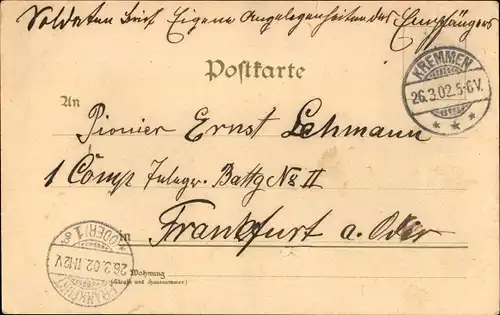 Soldaten Brief Eigene Angelegenheiten des Empfängers
Postkarte
KREMMEN
26.3.02.5-6V.
An
Pionier Ernst Lehmann
1 Comp Telegr. Battg No II
in
Frankfurt a. Oder
FRANKFURT
(ODER) 1
26.3.02.11-12V.
Wohnung
(Straße und Hausnummer)